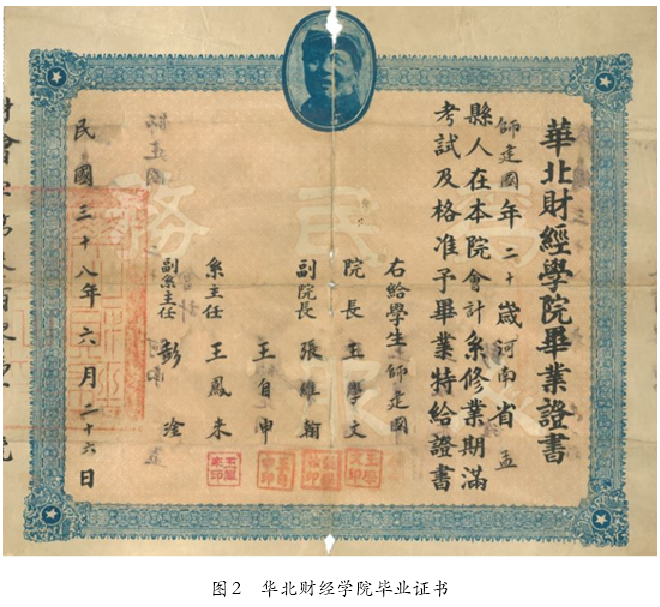 華北財經學院畢業證書
師建國年二十歲河南省孟
縣人在本院會計系修業期滿
考試及格准予畢業特給證書
右給學生師建國
院長王學文
副院長張維翰
王自申
系主任王鳳来
副系主任彭
民國三十八年六月二十六日
為人民服務
图2 华北财经学院毕业证书